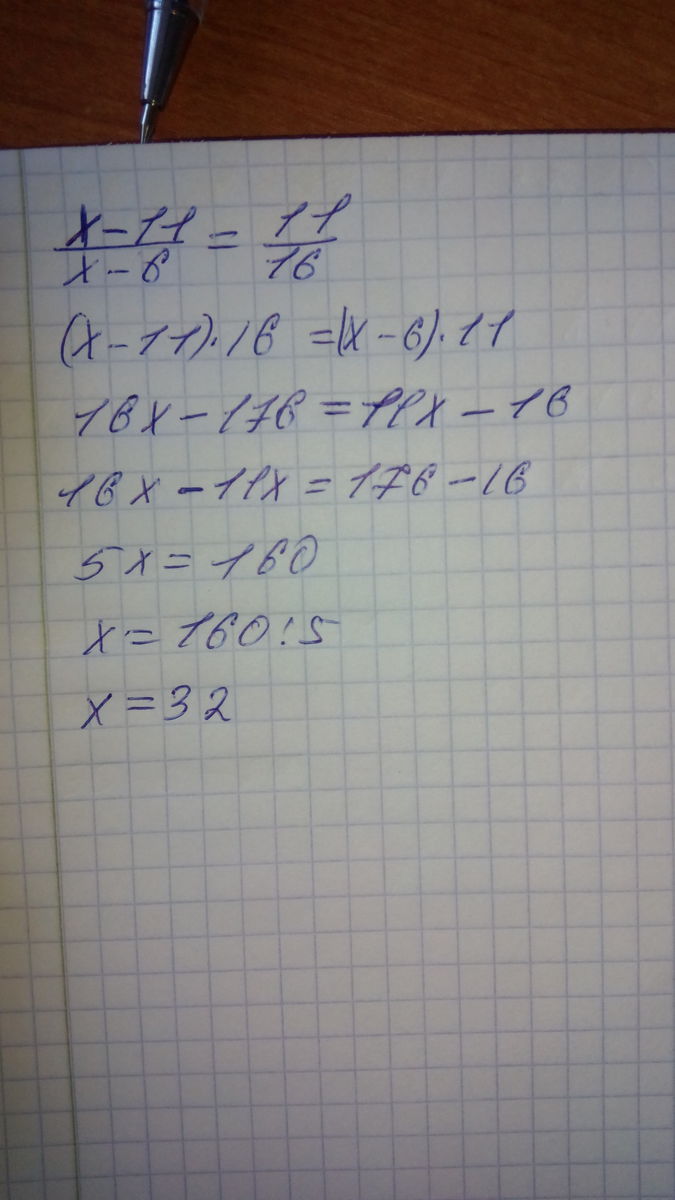 x-11/x-6 = 11/16
(x-11)·16 =(x-6)·11
16x-176=11x-16
16x-11x=176-16
5x=160
x=160:5
x=32